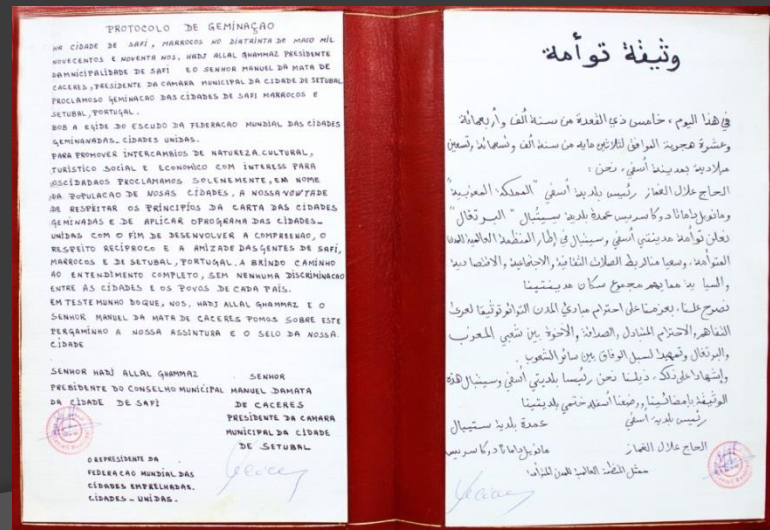 PROTOCOLO DE GEMINAÇAO
NA CIDADE DE SAFI, MARROCOS NO DIATRINTA DE MAIO MIL
NOVECENTOS E NOVENTA NOS, HADJ ALLAL GHAMMAZ PRESIDENTE
DAMNICIPALIDADE DE SAFI E O SENHOR MANUEL DA MATA DE
CACERES, PRESIDENTE DA CAMARA MUNICIPAL DA CIDADE DE SETUBAL
PROCLAMOSO GEMINACAO DAS CIDADES DE SAFI MARROCOS E
SETUBAL, PORTUGAL.
BOB A EGIDE DO ESCUDO DA FEDERACAO MUNDIAL DAS CIDADES
GEMINANADAS_ CIDADES UNIDAS.
PARA PROMOVER INTERCAMBIOS DE NATUREZA CULTURAL,
TURISTICO SOCIAL E ECONOMICO COM INTERESS PARA
OSCIDADAOS PROCLAMAMOS SOLENEMENTE, EM NOME
DA POPULACAO DE NOSAS CIDADES, A NOSSA VONTADE
DE RESPEITAR OS PRINCÍPIOS DA CARTA DAS CIDADES
GEMINADAS E DE APLICAR OPROGRAMA DAS CIDADES_
UNIDAS COM O FIM DE DESENVOLVER A COMPREENAO, O
RESPEITO RECÍPROCO E A AMIZADE DAS GENTES DE SAFI,
MARROCOS E DE SETUBAL, PORTUGAL. A BRINDO CAMINHO
AO ENTENDIMENTO COMPLETO, SEM NENHUMA DISCRIMINACAO
ENTRE AS CIDADES E OS POVOS DE CADA PAÍS.
EM TESTE MUNHO DO QUE, NOS, HADJ ALLAL GHAMMAZ E O
SENHOR MANUEL DA MATA DE CACERES POMOS SOBRE ESTE
PERGAMINHO A NOSSA ASSINTURA E O SELO DA NOSSA
CIDADE
SENHOR HADJ ALLAL GHAMMAZ
PRESIDENTE DO CONSELHO MUNICIPAL
DA CIDADE DE SAFI
SENHOR
MANUEL DAMATA
DE CACERES
PRESIDENTE DA CAMARA
MUNICIPAL DA CIDADE
DE SETUBAL
O REPRESIDENTE DA
FEDERACAO MUNDIAL DAS
CIDADES EMPRELHADAS.
CIDADES _ UNIDAS.
وثيقة توأمة
في هذا اليوم، خامس ذي القعدة من سنة ألف وأربعمائة
وعشرة هجرية الموافق لثلاثين مايه من سنة ألف وتسعمائة وتسعين
ميلادية بمدينة أسفي، نحن :
الحاج علال الغماز رئيس بلدية أسفي "المملكة المغربية"
ومانويل داماتا دوكا سريس عمدة بلدية سيتبال "البرتغال"
نعلن توأمة مدينتي أسفي وسيتبال في إطار المنظمة العالمية للمدن
المتوأمة، وسعيا منا لربط الصلات الثقافية والاجتماعية والاقتصادية
والسياحية مما يهم مجموع سكان مدينتينا
نصرح علنا، بعزمنا على احترام مبادئ المدن التوائم توثيقا لعرى
التفاهم والاحترام المتبادل والصداقة والأخوة بين شعبي المغرب
والبرتغال وتمهيدا لسبل الوفاق بين سائر الشعوب .
وإشهادا على ذلك، ذيلنا نحن رئيسا بلديتي أسفي وسيتبال هذه
الوثيقة بإمضائينا ووضعنا أسفله ختمي بلديتينا
رئيس بلدية أسفي عمدة بلدية ستيبال
الحاج علال الغماز مانويل داماتا دوكا سريس
ممثل المنظمة العالمية للمدن المتوأمة